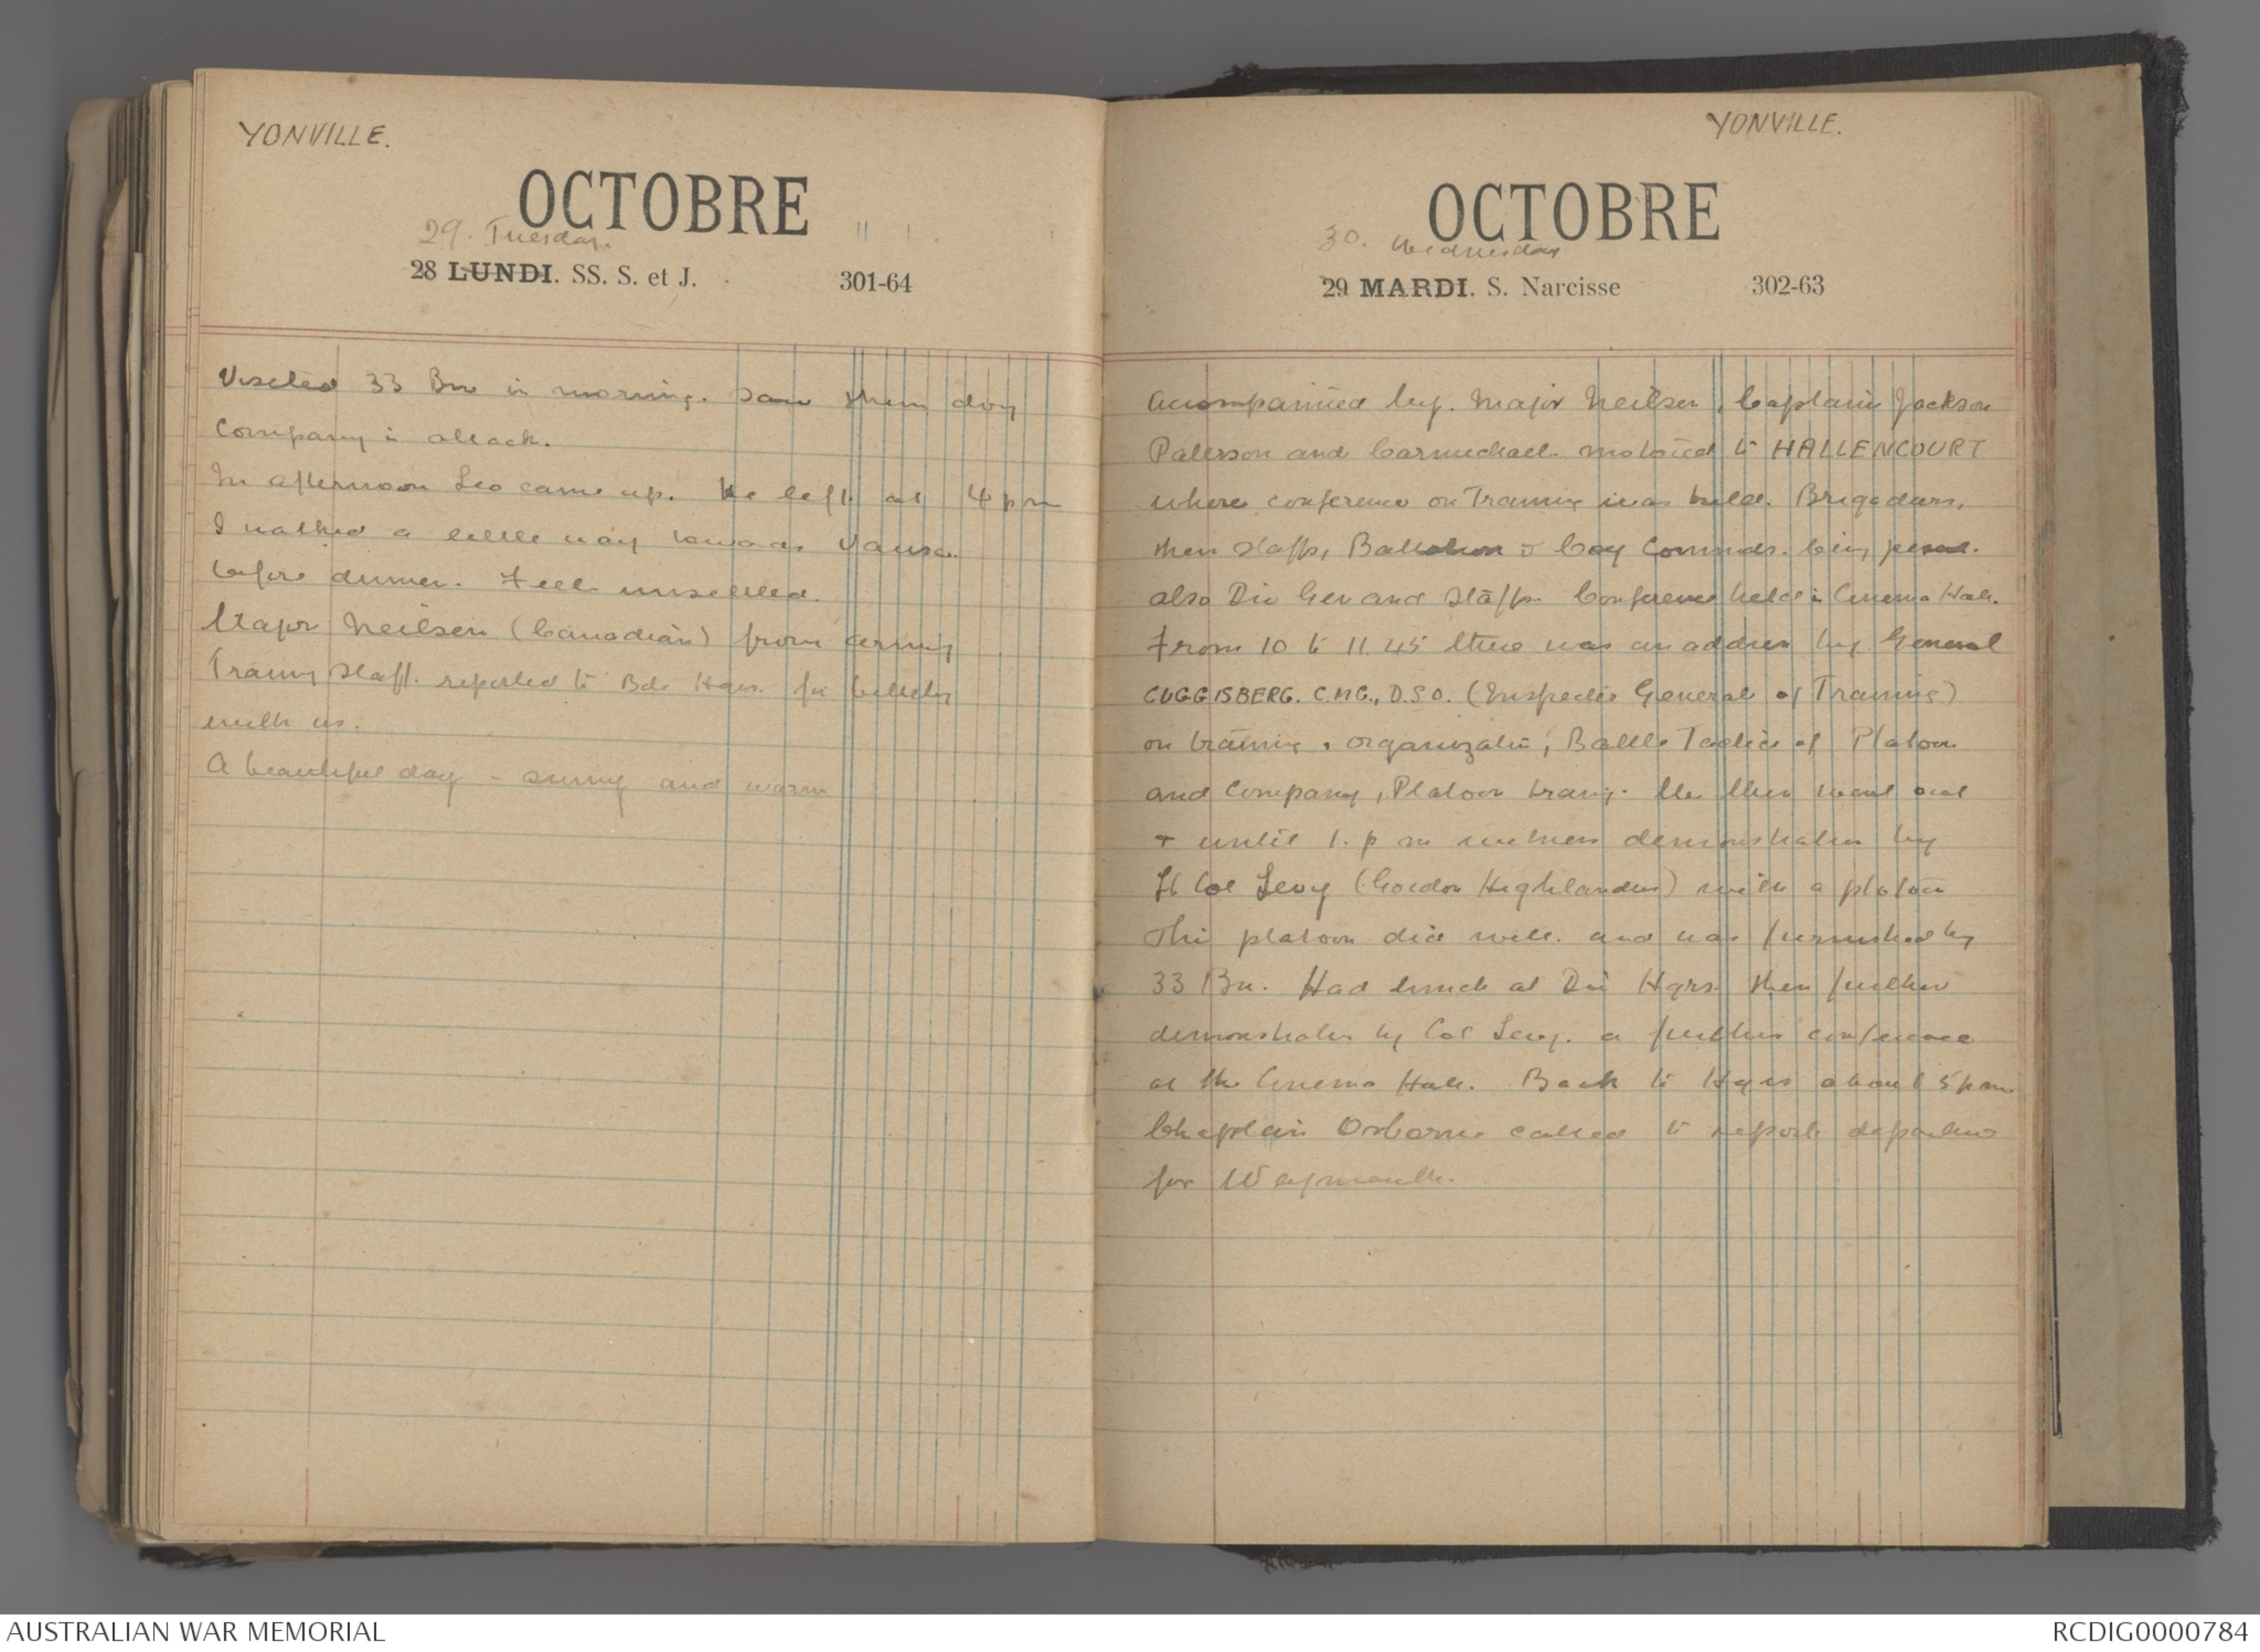 YONVILLE.
OCTOBRE
29. Tuesday.
28 LUNDI. SS. S. et J. 301-64
Visited 33 Bn in morning. Saw them doing
Company in attack.
In afternoon Leo came up. He left at 4 pm
I walked a little way towards
before dinner. Feel unsettled.
Major Neilsen (Canadian) from army
Traing Staff. reported to Bde Hqrs. for
with us.
A beautiful day - sunny and warm
YONVILLE.
OCTOBRE
30. Wednesday
29 MARDI. S. Narcisse 302-63
Accompanied by. Major Neilsen, Captain Jackson
Paterson and Carmichael motored to HALLENCOURT
where conference on Training was held. Brigadiers,
their staffs, Battalion & Coy Commdrs. being
also Div Gen and Staff. Conference held in Cinema Hall.
From 10 to 11.45 there was an address by General
GUGGISBERG. C.M.G., D.S.O. (Inspector General of Training)
on training, organization, Battle Tactics of Platoon
and Company, Platoon traing. We then went out
& until 1. p m witness demonstration by
Lt Col Levy (Gordon Highlanders) with a platoon
This platoon did well. and was furnished by
33 Bn. Had lunch at Div Hqrs. then further
demonstration by Col Levy. a further conference
at the Cinema Hall. Back to Hqrs about 5 pm.
Chaplain Osborne called to report departure
for Weymouth.
AUSTRALIAN WAR MEMORIAL
RCDIG0000784